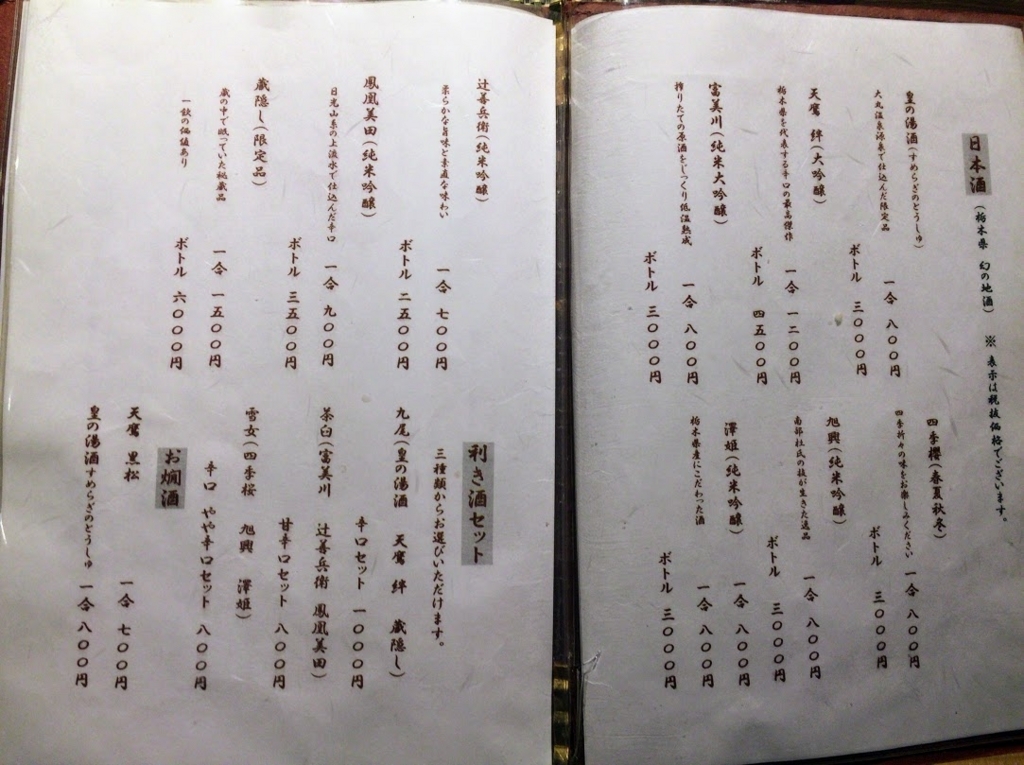 日本酒 (栃木県 幻の地酒) ※ 表示は税抜価格でございます。
皇の湯酒(すめらぎのとうしゅ)
大丸温泉源泉で仕込んだ限定品
一合 八〇〇円
ボトル 三〇〇〇円
天鷹 絆(大吟醸)
栃木県を代表する辛口の最高傑作
一合 一二〇〇円
ボトル 四五〇〇円
富美川(純米大吟醸)
搾りたての原酒をじっくり低温熟成
一合 八〇〇円
ボトル 三〇〇〇円
四季櫻(春夏秋冬)
四季折々の味をお楽しみください
一合 八〇〇円
ボトル 三〇〇〇円
旭興(純米吟醸)
南部杜氏の技が生きた逸品
一合 八〇〇円
ボトル 三〇〇〇円
澤姫(純米吟醸)
栃木県産にこだわった酒
一合 八〇〇円
一合 八〇〇円
ボトル 三〇〇〇円
辻善兵衛(純米吟醸)
柔らかな旨味と素直な味わい
一合 七〇〇円
ボトル 二五〇〇円
鳳凰美田(純米吟醸)
日光山系の上流水で仕込んだ辛口
一合 九〇〇円
ボトル 三五〇〇円
蔵隠し(限定品)
蔵の中で眠っていた秘蔵品
一飲の価値あり
一合 一五〇〇円
ボトル 六〇〇〇円
利き酒セット
三種類からお選びいただけます。
九尾(皇の湯酒 天鷹 絆 蔵隠し)
辛口セット 一〇〇〇円
茶臼(富美川 辻善兵衛 鳳凰美田)
甘辛口セット 八〇〇円
雪女(四季桜 旭興 澤姫)
辛口 やや辛口セット 八〇〇円
お燗酒
天鷹 黒松 一合 七〇〇円
皇の湯酒すめらぎのとうしゅ 一合 八〇〇円